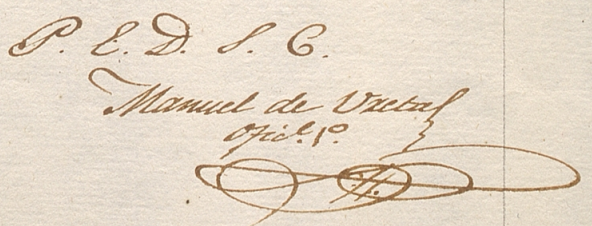 P. E. D. S. C.
Manuel de Vretaf
Ofic.l 1.o
H.